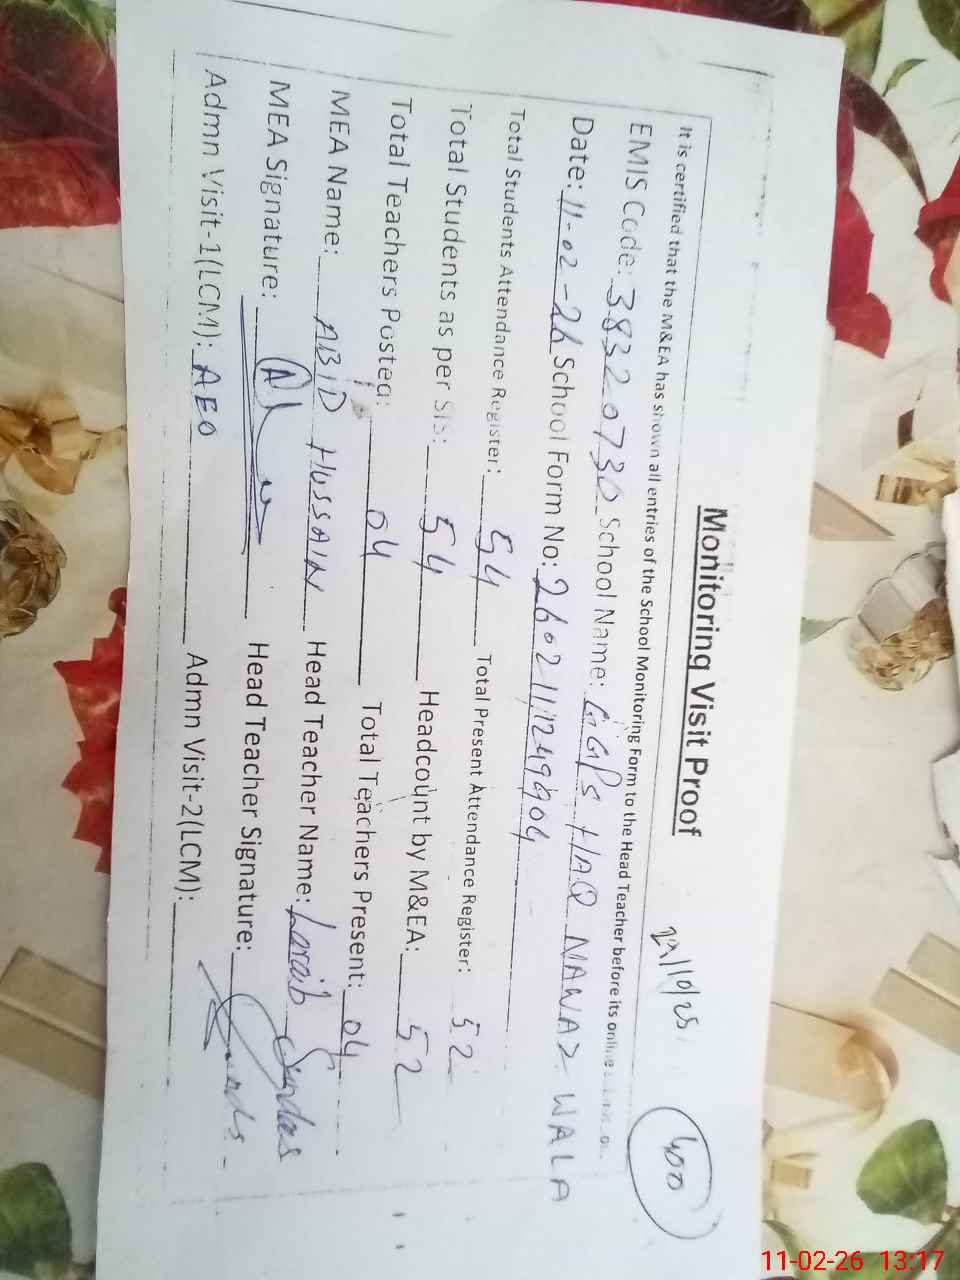 Monitoring Visit Proof
22/10/25
400
It is certified that the M&EA has shown all entries of the School Monitoring Form to the Head Teacher before its online
EMIS Code: 38320730 School Name: GGPS HAQ NAWAZ WALA
Date: 11-02-26 School Form No: 2602111249904
Total Students Attendance Register: 54 Total Present Attendance Register: 52
Total Students as per SIS: 54 Headcount by M&EA: 52
Total Teachers Posted: 04 Total Teachers Present: 04
MEA Name: ABID HUSSAIN Head Teacher Name: Laraib
MEA Signature: Head Teacher Signature:
Admn Visit-1(LCM): AEO Admn Visit-2(LCM):
11-02-26 13:17